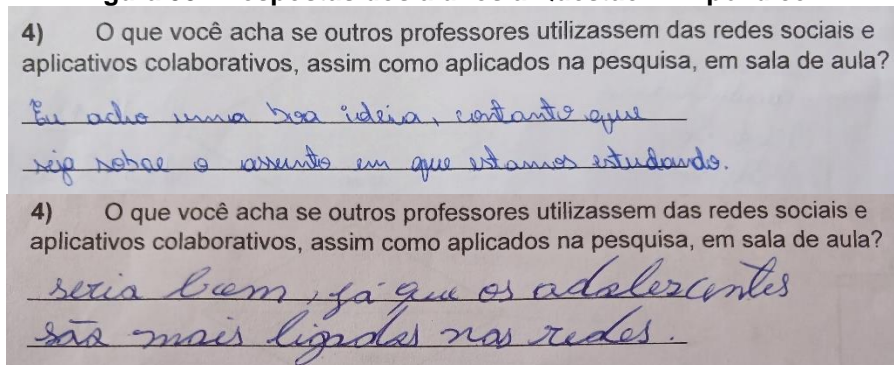 4) O que você acha se outros professores utilizassem das redes sociais e
aplicativos colaborativos, assim como aplicados na pesquisa, em sala de aula?
Eu acho uma boa ideia, contanto que
seja sobre o assunto em que estamos estudando.
4) O que você acha se outros professores utilizassem das redes sociais e
aplicativos colaborativos, assim como aplicados na pesquisa, em sala de aula?
seria bom, já que os adolescentes
são mais ligados nas redes.